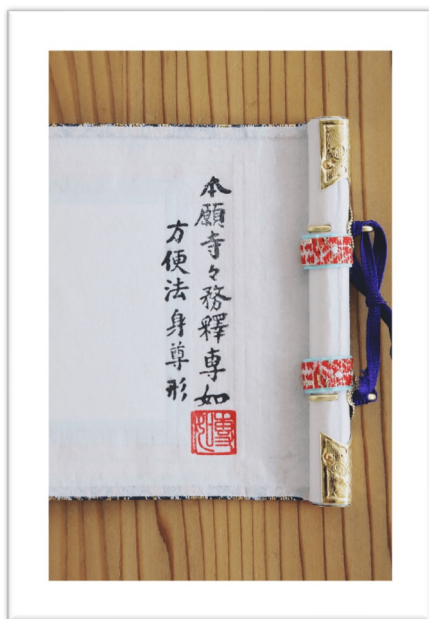 本願寺々務釋専如
方便法身尊形